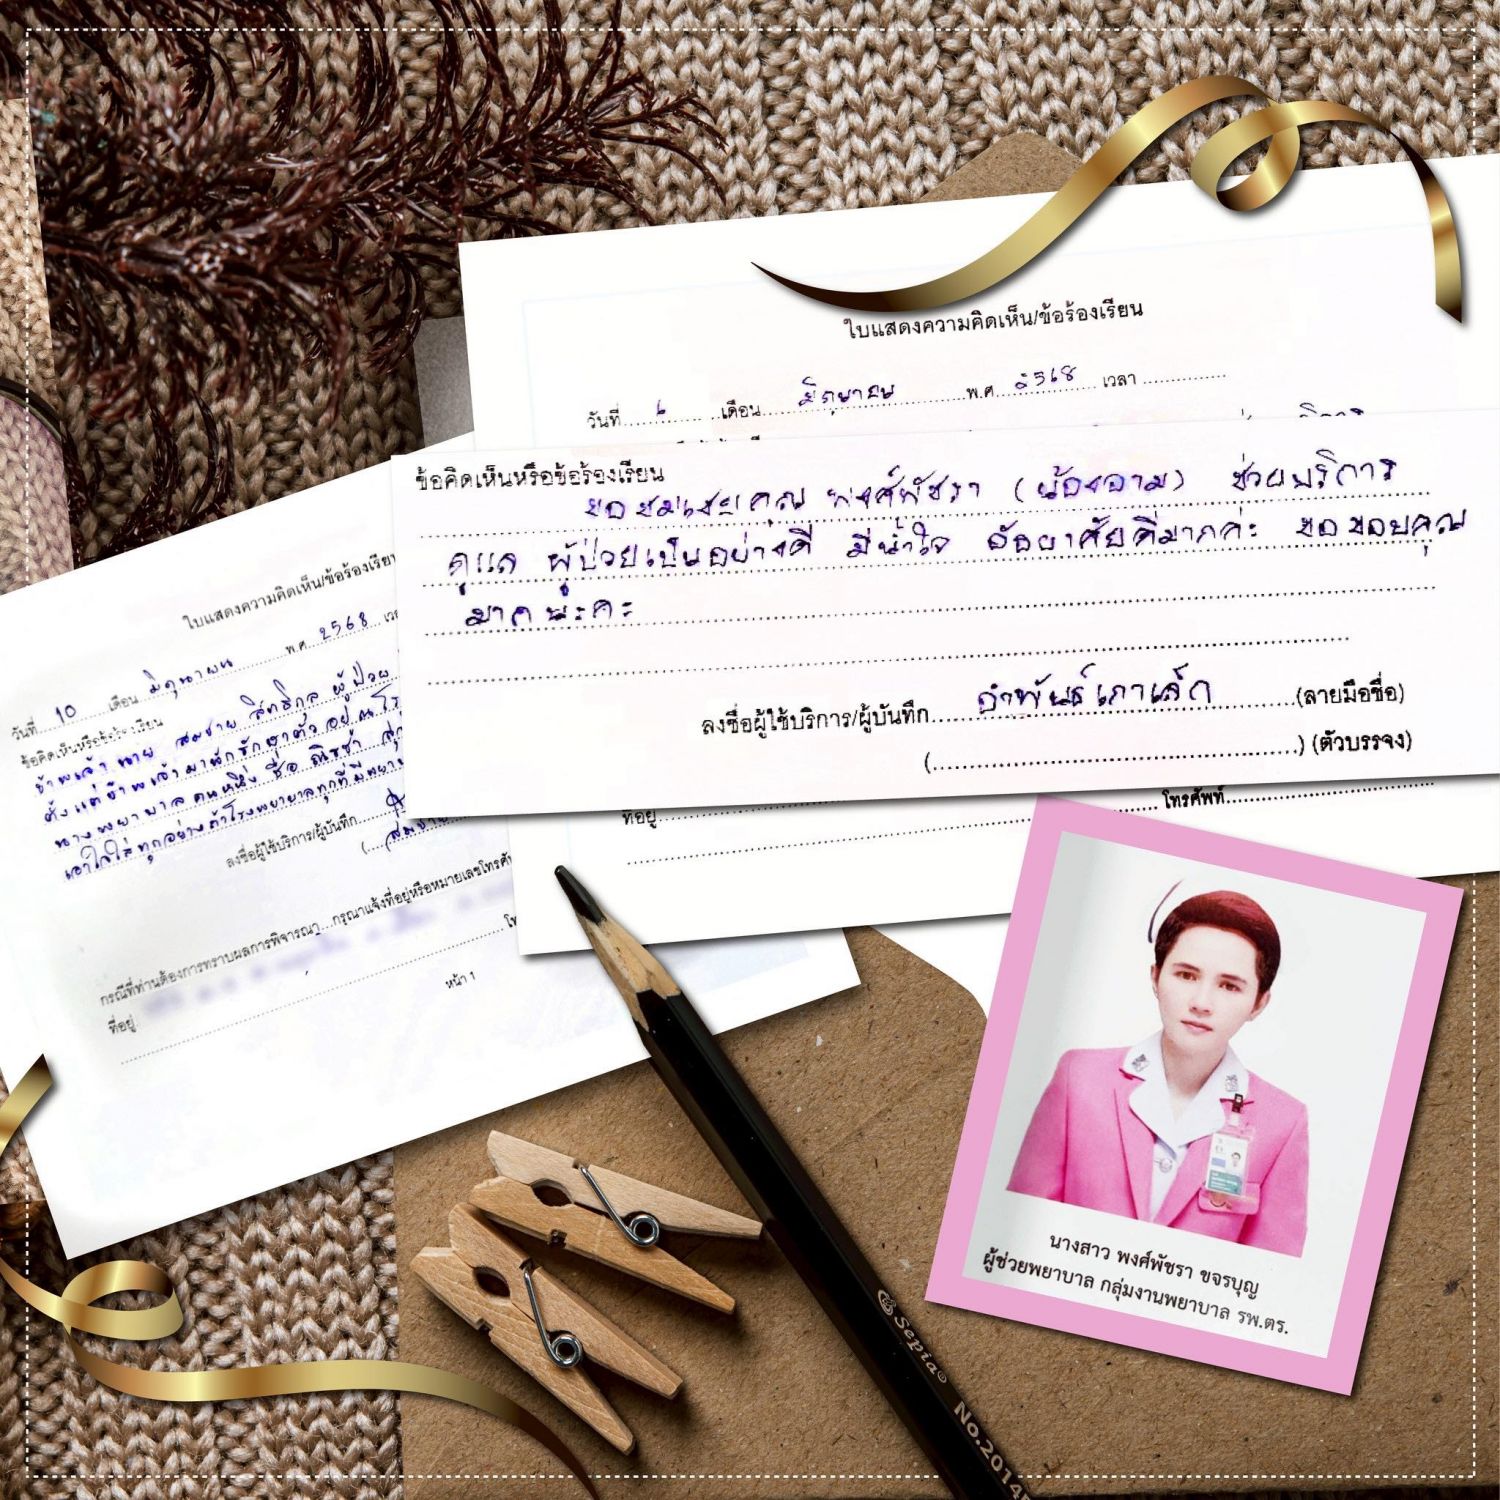 ใบแสดงความคิดเห็น/ข้อร้องเรียน
วันที่ ๖ เดือน มิถุนายน พ.ศ. ๒๕๖๘ เวลา
ข้อคิดเห็นหรือข้อร้องเรียน
ขอชมเชยคุณ พงศ์พัชรา (น้องจาม) ช่วยบริการ
ดูแล ผู้ป่วยเป็นอย่างดี มีน้ำใจ อัธยาศัยดีมากค่ะ ขอขอบคุณ
มากนะคะ
ลงชื่อผู้ใช้บริการ/ผู้บันทึก (ลายมือชื่อ)
(ตัวบรรจง)
ที่อยู่ โทรศัพท์
ใบแสดงความคิดเห็น/ข้อร้องเรียน
วันที่ 10 เดือน มิถุนายน พ.ศ. 2568
ข้อคิดเห็นหรือข้อร้องเรียน
ข้าพเจ้า นาย สมชาย ผู้ป่วย
ตั้งแต่ข้าพเจ้ามาพักรักษาตัวอยู่
นางพยาบาลคนหนึ่ง ชื่อ ณิชชา
เอาใจใส่ทุกอย่าง ถ้าโรงพยาบาลทุกที่มีพยาบาล
ลงชื่อผู้ใช้บริการ/ผู้บันทึก
กรณีที่ท่านต้องการทราบผลการพิจารณา...กรุณาแจ้งที่อยู่หรือหมายเลขโทรศั
ที่อยู่
หน้า 1
นางสาว พงศ์พัชรา ขจรบุญ
ผู้ช่วยพยาบาล กลุ่มงานพยาบาล รพ.ตร.
Sepia® No.2014